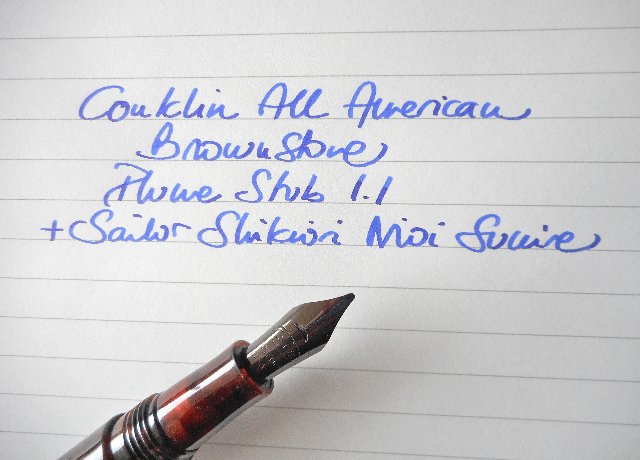 Conklin All American
Brownstone
Plume Stub 1.1
+ Sailor Shikiori Nioi Sumire